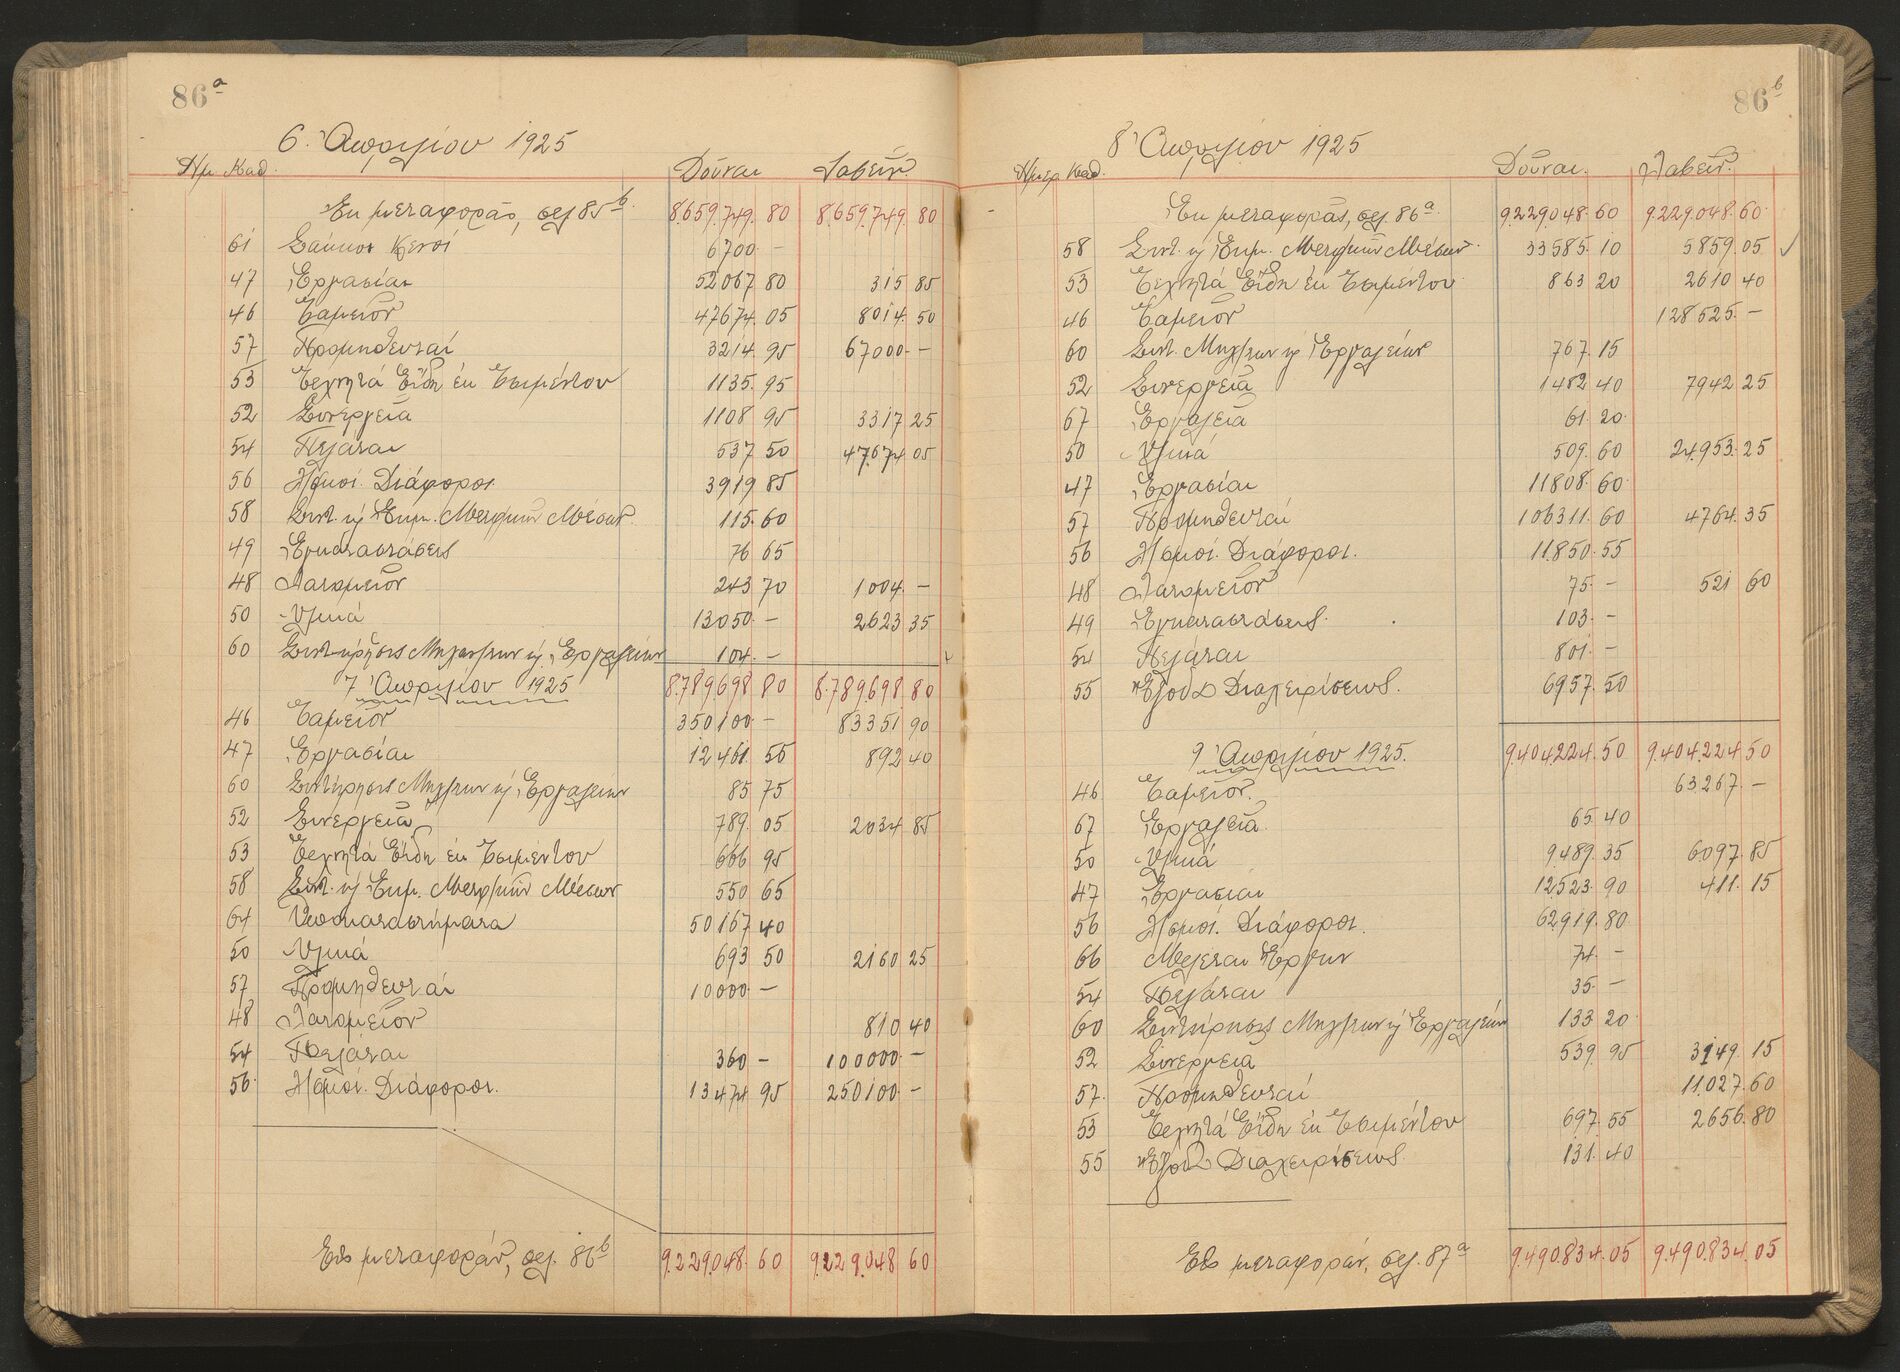 86α
6 Ἀπριλίου 1925
Ημ Καθ. Δοῦναι Λαβεῖν
Ἐκ μεταφορᾶς, σελ. 85b. 8.659.749. 80 8.659.749. 80
61 Σάκκοι κενοί 6700 -
47 Ἐργασίαι 52067 80 315 85
46 Ταμεῖον 47674. 05 8014. 50
57 Προμηθευταί 3214. 95 67000 -
53 Τεχνητά Εἴδη ἐκ Τσιμέντου 1135. 95
52 Συνεργεῖα 1108 95 3317 25
54 Πελάται 537 50 47674 05
56 Λ/σμοί. Διάφοροι 3919 85
58 Συντ. κ Ἐκμ. Μεταφ/κῶν Μέσων. 115. 60
49 Ἐγκαταστάσεις 76 65
48 Λατομεῖον 243 70 1004. -
50 Ὑλικά 13050. - 2623 35
60 Συντήρησις Μηχαν/των κ Ἐργαλείων 104. -
7 Ἀπριλίου 1925 8.789.698 80 8.789.698 80
46 Ταμεῖον 350100 - 83351 90
47 Ἐργασίαι 12461. 55 892 40
60 Συντήρησις Μηχ/των κ Ἐργαλείων 85 75
52 Συνεργεῖα 789. 05 2034 85
53 Τεχνητά Εἴδη ἐκ Τσιμέντου 666 95
58 Συντ. κ Ἐκμ. Μεταφ/κῶν Μέσων 550 65
64 Ὑποκαταστήματα 50167 40
50 Ὑλικά 693 50 2160 25
57 Προμηθευταί 10000 -
48 Λατομεῖον 810 40
54 Πελάται 360 - 100000 -
56. Λ/σμοί. Διάφοροι. 13474 95 250100 -
Εἰς μεταφοράν, σελ. 86b 9.229.048. 60 9.229.048 60
86b
8 Ἀπριλίου 1925
Ημερ Καθ. Δοῦναι. Λαβεῖν.
Ἐκ μεταφορᾶς, σελ. 86α. 9.229.048. 60 9.229.048. 60
58 Συντ. κ Ἐκμ. Μεταφ/κῶν Μέσων. 33585. 10 5859. 05 ✓
53 Τεχνητά Εἴδη ἐκ Τσιμέντου 863 20 2610 40
46 Ταμεῖον 128525. -
60 Συντ. Μηχ/των κ Ἐργαλείων 767. 15
52 Συνεργεῖα 1482 40 7942 25
67 Ἐργαλεῖα 61. 20
50 Ὑλικά 509. 60 24.953. 25
47 Ἐργασίαι 11808. 60
57 Προμηθευταί 106311. 60 4764. 35
56 Λ/σμοί. Διάφοροι. 11.850. 55
48 Λατομεῖον 75. - 521 60
49 Ἐγκαταστάσεις. 103. -
54 Πελάται 801. -
55 Ἔξοδα Διαχειρίσεως. 6957. 50
9 Ἀπριλίου 1925. 9.404.224. 50 9.404.224. 50
46 Ταμεῖον. 63.267. -
67 Ἐργαλεῖα. 65. 40
50 Ὑλικά 9489. 35 6097. 85
47 Ἐργασίαι 12523. 90 411. 15
56 Λ/σμοί. Διάφοροι. 62919. 80
66 Μελέται Ἔργων 74. -
54 Πελάται 35. -
60 Συντήρησις Μηχ/των κ Ἐργαλείων 133 20
52 Συνεργεῖα 539. 95 3149. 15
57. Προμηθευταί 11.027. 60
53 Τεχνητά Εἴδη ἐκ Τσιμέντου 697. 55 2656. 80
55 Ἔξοδα Διαχειρίσεως. 131. 40
Εἰς μεταφοράν, σελ. 87α 9.490.834. 05 9.490.834. 05